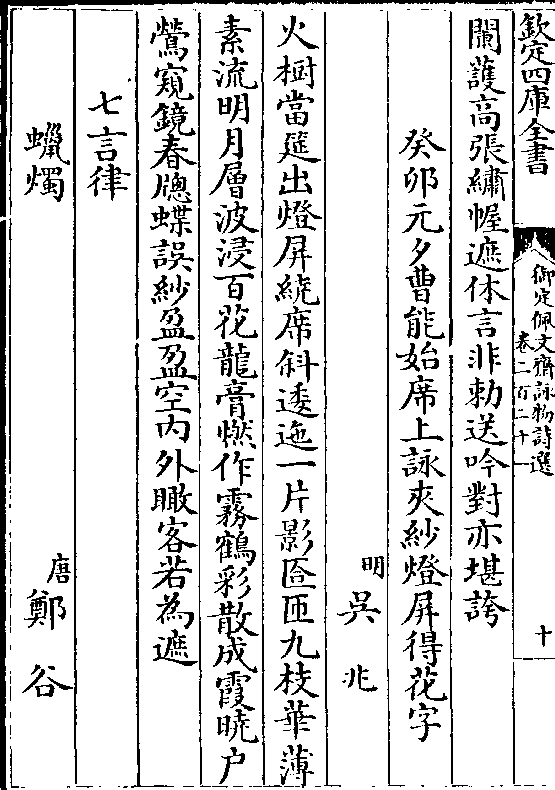 欽定四庫全書
御定佩文齋詠物詩選
卷二百二十一
十
闌護高張繡幄遮休言非勅送吟對亦堪誇
癸卯元夕曹能始席上詠夾紗燈屏得花字
明 吳兆
火樹當筵出燈屏繞席斜逶迤一片影匼匝九枝華薄
素流明月層波浸百花龍膏燃作霧鶴彩散成霞曉户
鶯窺鏡春牕蝶誤紗盈盈空内外瞰客若為遮
七言律
蠟燭
唐 鄭谷